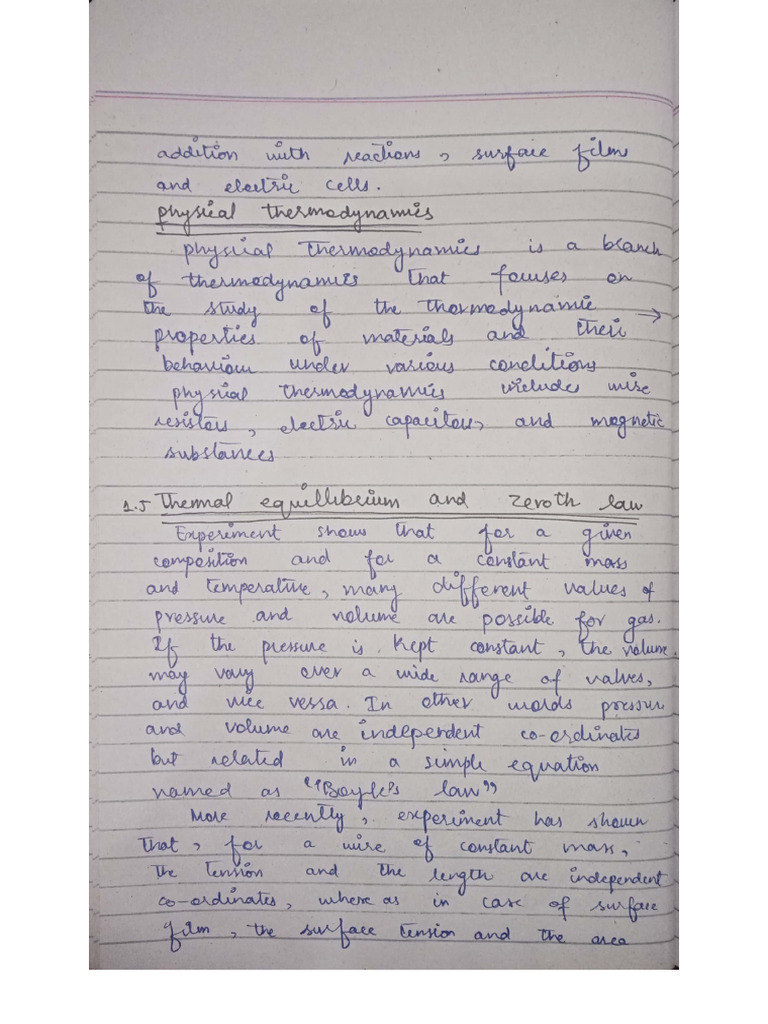 addition with reactions, surface films
and electric cells.
physical thermodynamics
physical thermodynamics is a branch
of thermodynamics that focuses on
the study of the thormodynamic →
properties of materials and their
behaviour under various conditions
physical thermodynamics includes wire
resistors, electric capacitors, and magnetic
substances
1.5 Thermal equillibrium and zeroth law
Experiment shows that for a given
composition and for a constant mass
and temperature, many different values of
pressure and volume are possible for gas.
If the pressure is kept constant, the volume
may vary over a wide range of valves,
and vice vessa. In other words pressure
and volume are independent co-ordinates
but related in a simple equation
named as "Boyle's law"
More recently, experiment has shown
that, for a wire of constant mass,
the tension and the length are independent
co-ordinates, where as in case of surface
film, the surface tension and the area